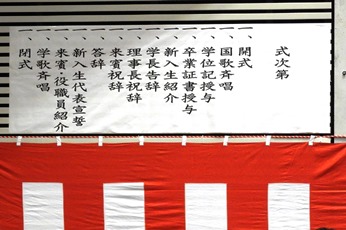 式次第
一、開式
一、国歌斉唱
一、学位記授与
一、卒業証書授与
一、新入生紹介
一、学長告辞
一、理事長祝辞
一、来賓祝辞
一、答辞
一、新入生代表宣誓
一、来賓・役職員紹介
一、学歌斉唱
一、閉式